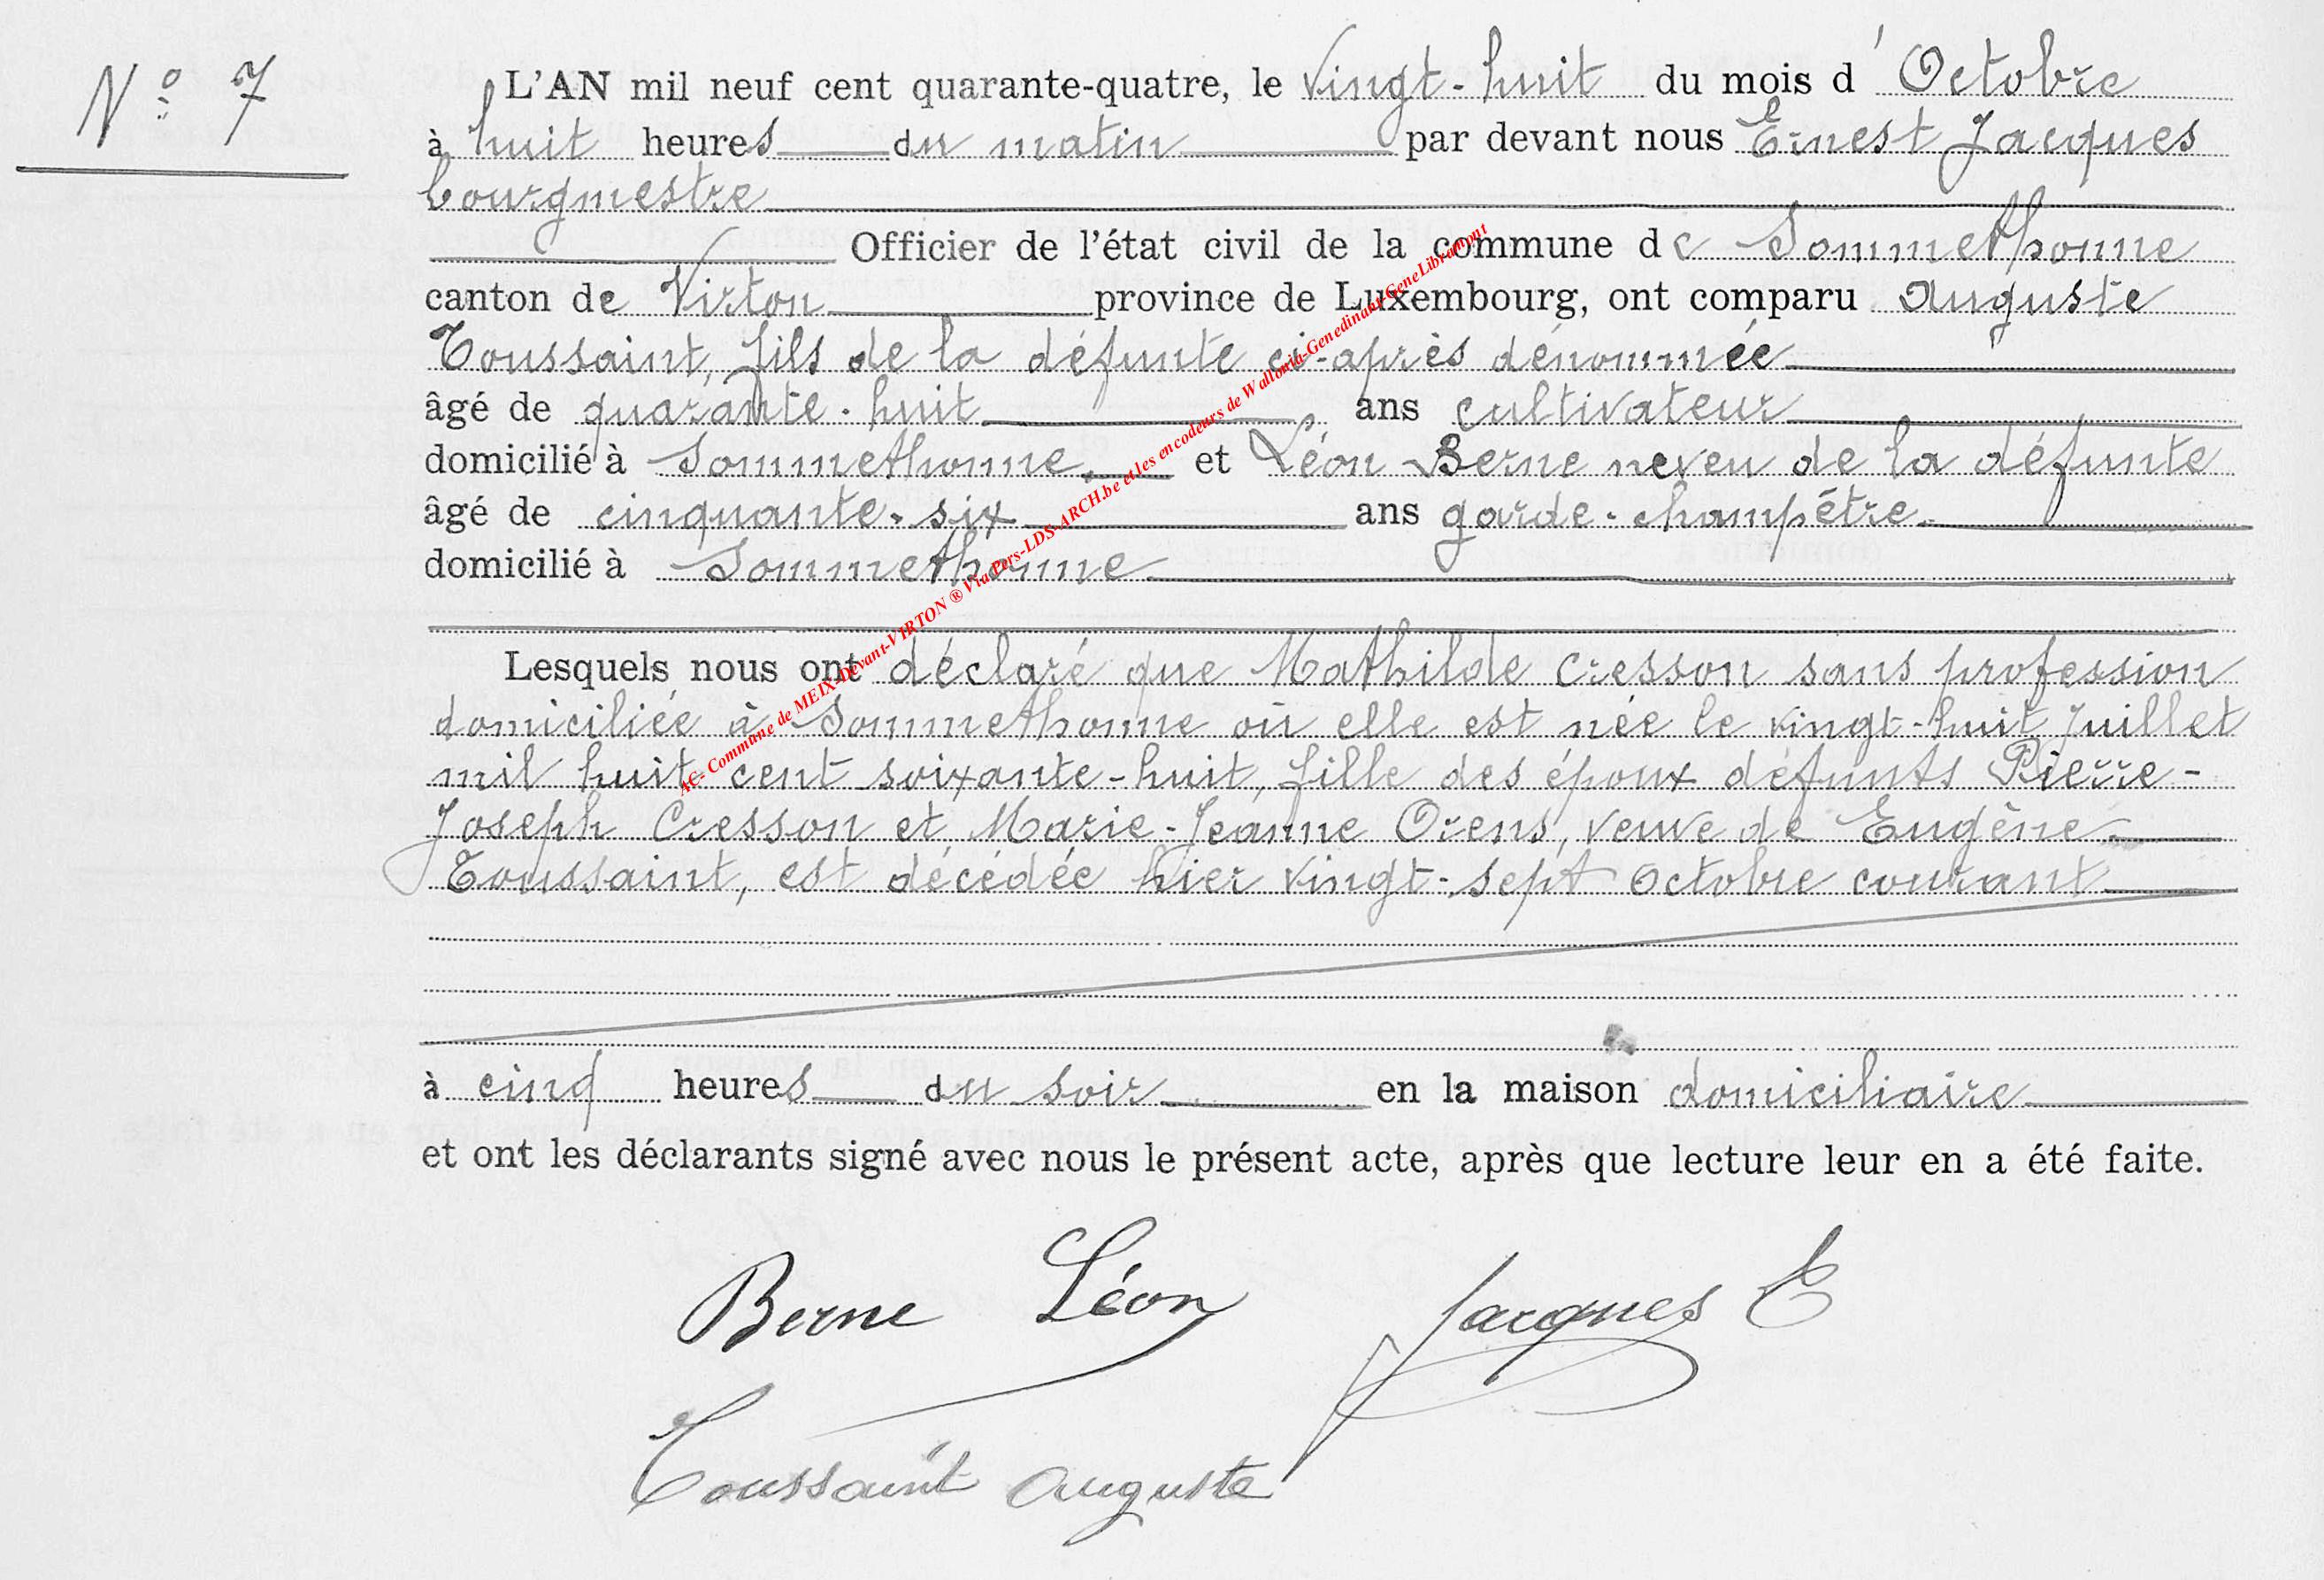 N° 7
L'AN mil neuf cent quarante-quatre, le vingt-huit du mois d'Octobre
à huit heures du matin par devant nous Ernest Jacques
bourgmestre
Officier de l'état civil de la commune de Sommethonne
canton de Virton province de Luxembourg, ont comparu Auguste
Toussaint, fils de la défunte ci-après dénommée
âgé de quarante-huit ans cultivateur
domicilié à Sommethonne. et Léon Berne neveu de la défunte
âgé de cinquante-six ans garde-champêtre
domicilié à Sommethonne
Lesquels nous ont déclaré que Mathilde Cresson sans profession
domiciliée à Sommethonne où elle est née le vingt-huit Juillet
mil huit cent soixante-huit, fille des époux défunts Pierre-
Joseph Cresson et Marie-Jeanne Orens, veuve de Eugène
Toussaint, est décédée hier vingt-sept octobre courant
à cinq heures du soir en la maison domiciliaire
et ont les déclarants signé avec nous le présent acte, après que lecture leur en a été faite.
Berne Léon Jacques E
Toussaint Auguste
AC- Commune de MEIX-Devant-VIRTON ® Via Pers-LDS-ARCH.be et les encodeurs de Wallonia-Genedinant-GeneLibramont